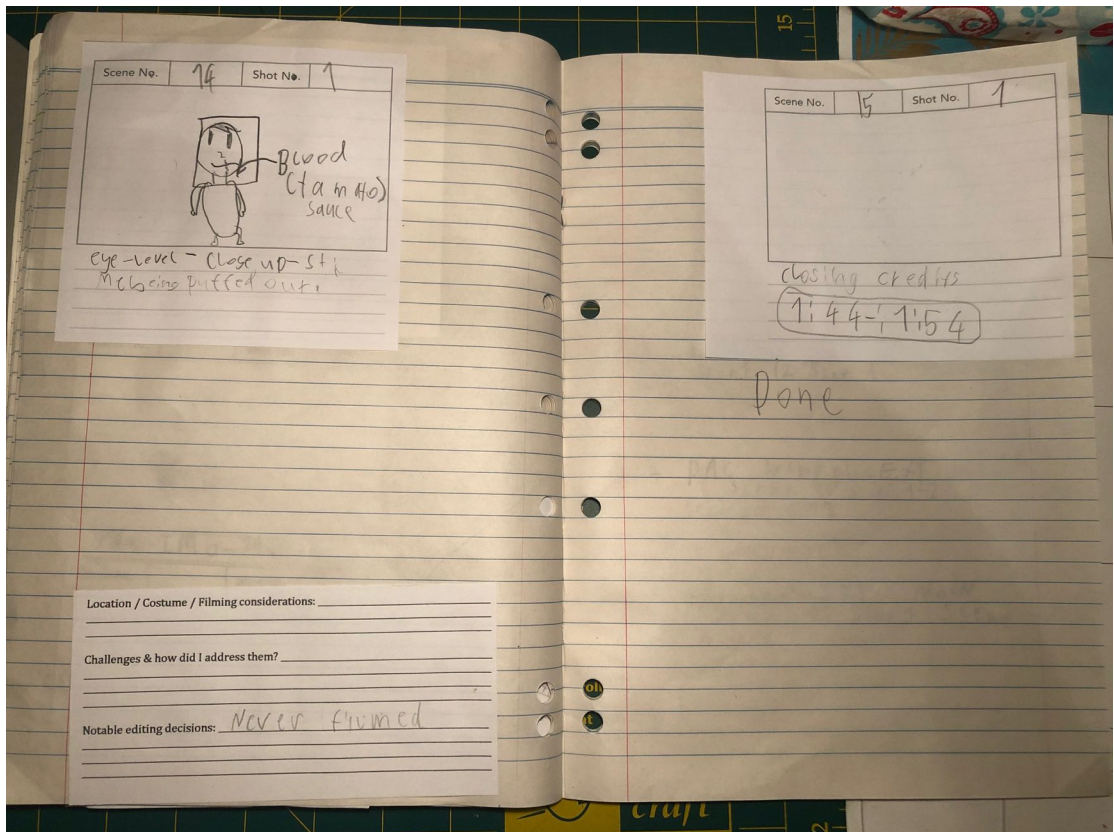 Scene No. 14 Shot No. 1
Blood
(tamato)
sauce
eye-level - close up - sti
Me being puffed out.
Location / Costume / Filming considerations:
Challenges & how did I address them?
Notable editing decisions: Never filmed
Scene No. 15 Shot No. 1
closing credits
1:44-1:54
Done
15
craft